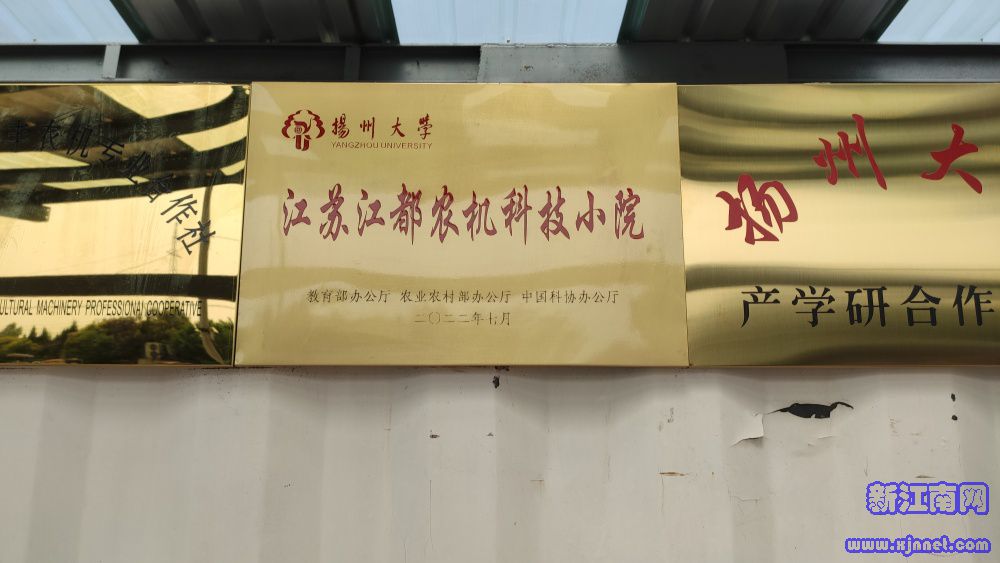 农机专业合作社
CULTURAL MACHINERY PROFESSIONAL COOPERATIVE
揚州大学
YANGZHOU UNIVERSITY
江苏江都农机科技小院
教育部办公厅 农业农村部办公厅 中国科协办公厅
二〇二二年七月
扬州大
产学研合作
新江南网
www.xjnnet.com